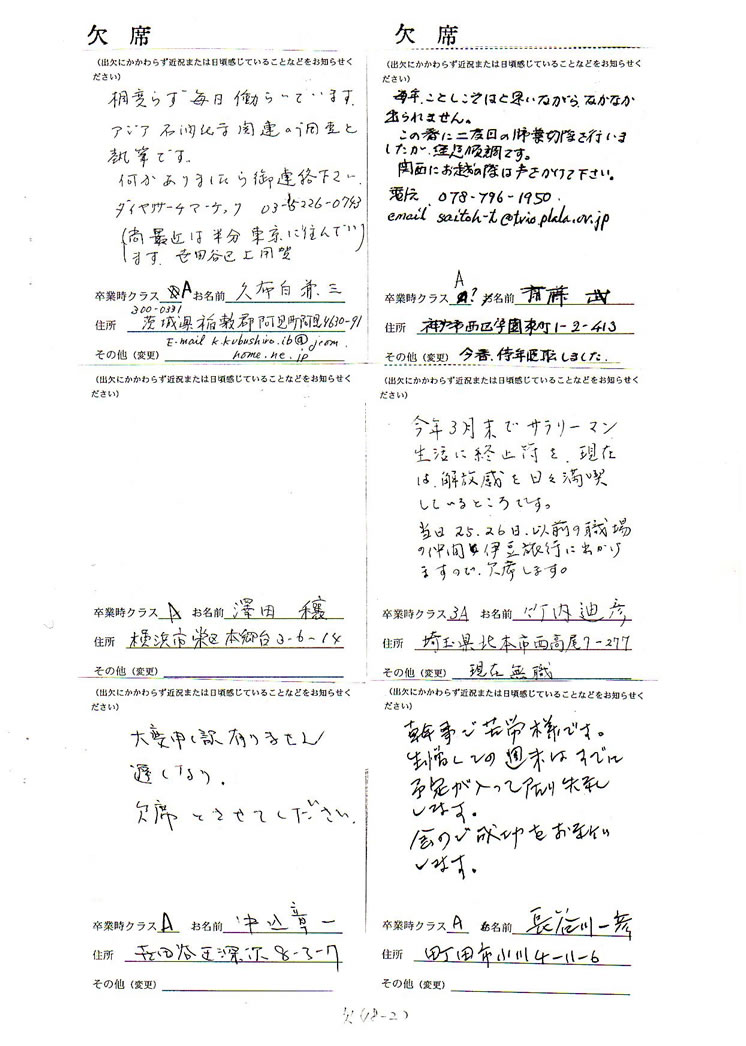 欠 席
(出欠にかかわらず近況または日頃感じていることなどをお知らせく
ださい)
相変らず毎日働らいています。
アジア石油化学関連の調査と
執筆です。
何かありましたら御連絡下さい。
ダイヤリサーチマーテック 03-5226-0743
(尚最近は半分東京に住んでい
ます。世田谷区上用賀
卒業時クラス A お名前 久布白兼三
300-0331
住所 茨城県稲敷郡阿見町阿見4630-91
E-mail k.kubushiro.ib@jcom.
その他(変更) home.ne.jp
欠 席
(出欠にかかわらず近況または日頃感じていることなどをお知らせく
ださい)
毎年、ことしこそはと思いながら、なかなか
出られません。
この春に二度目の肺葉切除を行いま
したが、経過順調です。
関西にお越の際は声をかけて下さい。
電話 078-796-1950
email saitoh-t@trio.plala.or.jp
A
卒業時クラス ? お名前 斎藤 武
住所 神戸市西区学園東町1-2-413
その他(変更) 今春、停年退職しました。
(出欠にかかわらず近況または日頃感じていることなどをお知らせく
ださい)
卒業時クラス A お名前 澤田 穰
住所 横浜市栄区本郷台3-6-14
その他(変更)
(出欠にかかわらず近況または日頃感じていることなどをお知らせく
ださい)
今年3月末でサラリーマン
生活に終止符を、現在
は、解放感を日々満喫
しているところです。
当日25.26日、以前の職場
の仲間と伊豆旅行に出かけ
ますので、欠席します。
卒業時クラス 3A お名前 竹内迪彦
住所 埼玉県北本市西高尾7-277
その他(変更) 現在無職
(出欠にかかわらず近況または日頃感じていることなどをお知らせく
ださい)
大変申し訳有りません
遅くなり。
欠席とさせてください。
卒業時クラス A お名前 中込章一
住所 世田谷区深沢8-3-7
その他(変更)
(出欠にかかわらず近況または日頃感じていることなどをお知らせく
ださい)
幹事ご苦労様です。
生憎この週末はすでに
予定が入って居り失礼
します。
会のご成功をお祈り
します。
卒業時クラス A お名前 長谷川一彦
住所 町田市小川4-11-6
その他(変更)
欠(18-2)